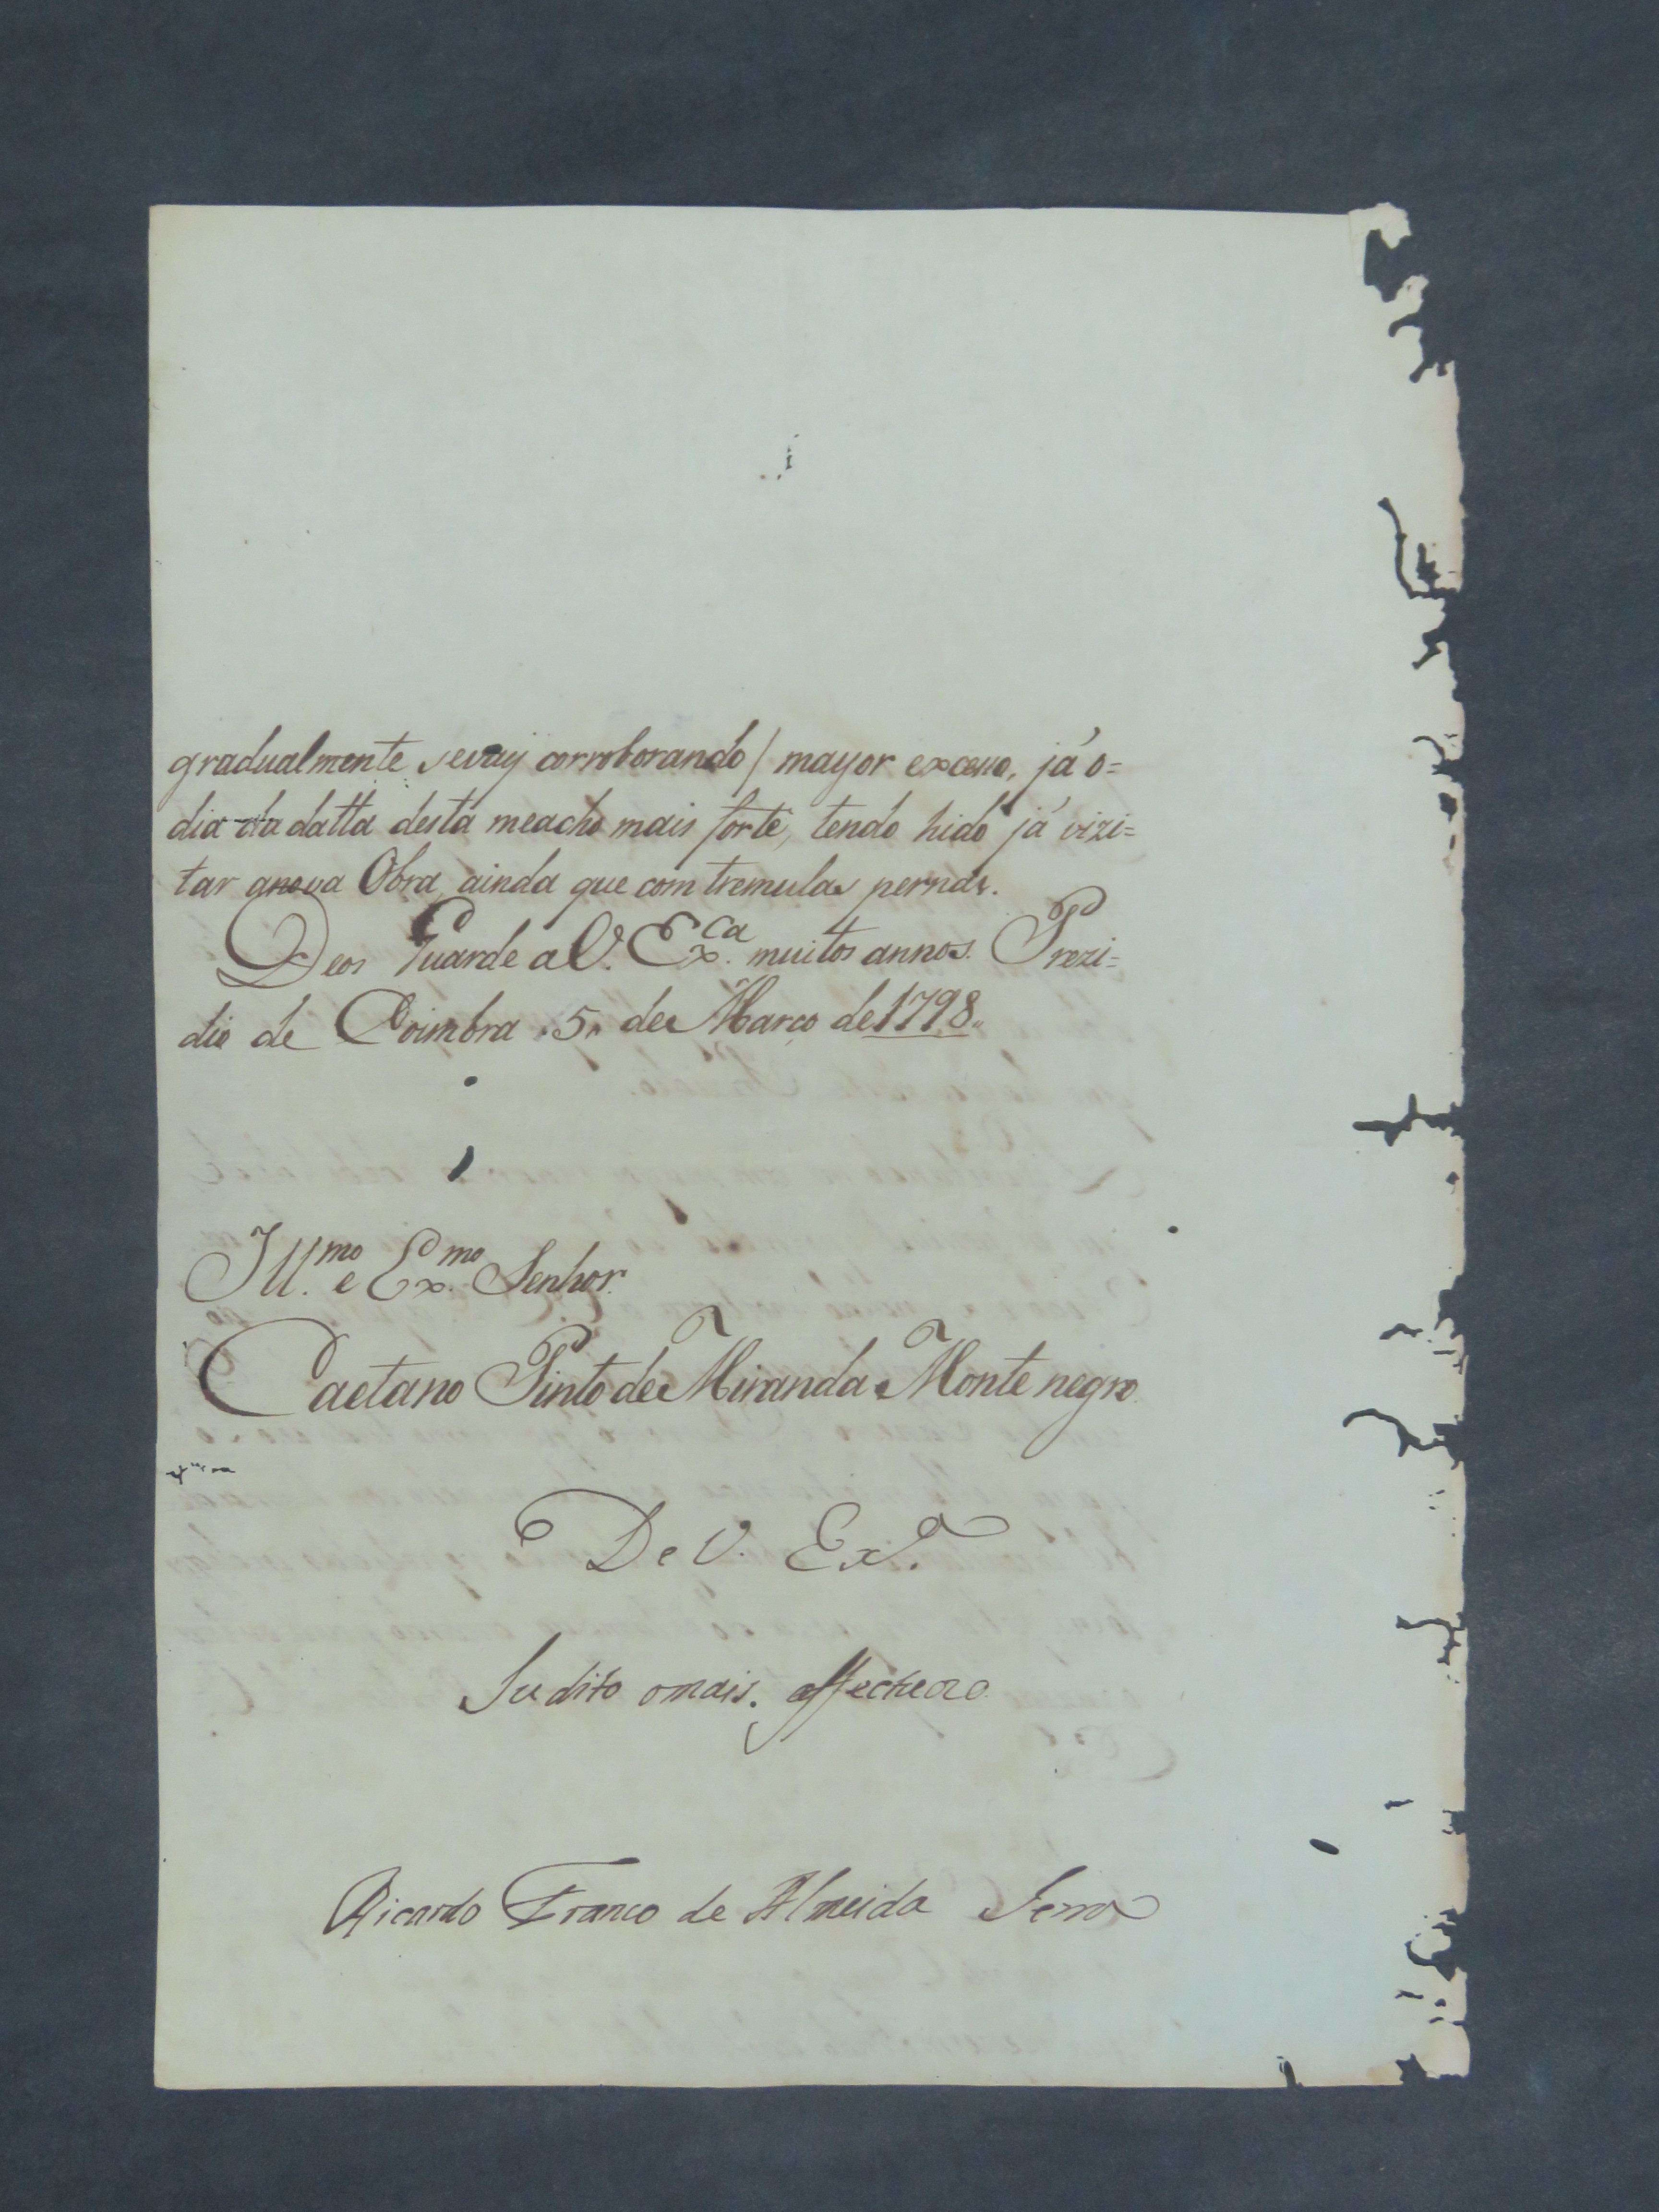 gradualmente sevay corroborando / mayor excesso, já o=
dia da datta desta meacho mais forte, tendo hido já vizi=
tar anova Obra, ainda que com tremulas pernas.
Deos Guarde a V. Ex.ca muitos annos. Prezi=
dio de Coimbra 5 de Março de 1798
Ill.mo e Ex.mo Senhor
Caetano Pinto de Miranda Monte negro.
De V. Ex.a
Sudito omais
Ricardo Franco de Almeida Serra